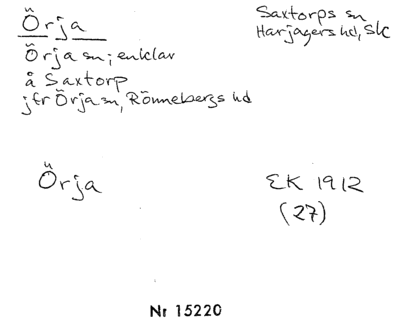 Örja
Saxtorps sn
Harjagers hd, Sk
Örja sn; enklav
å Saxtorp
jfr Örja sn, Rönnebergs hd
Örja
EK 1912
(27)
Nr 15220